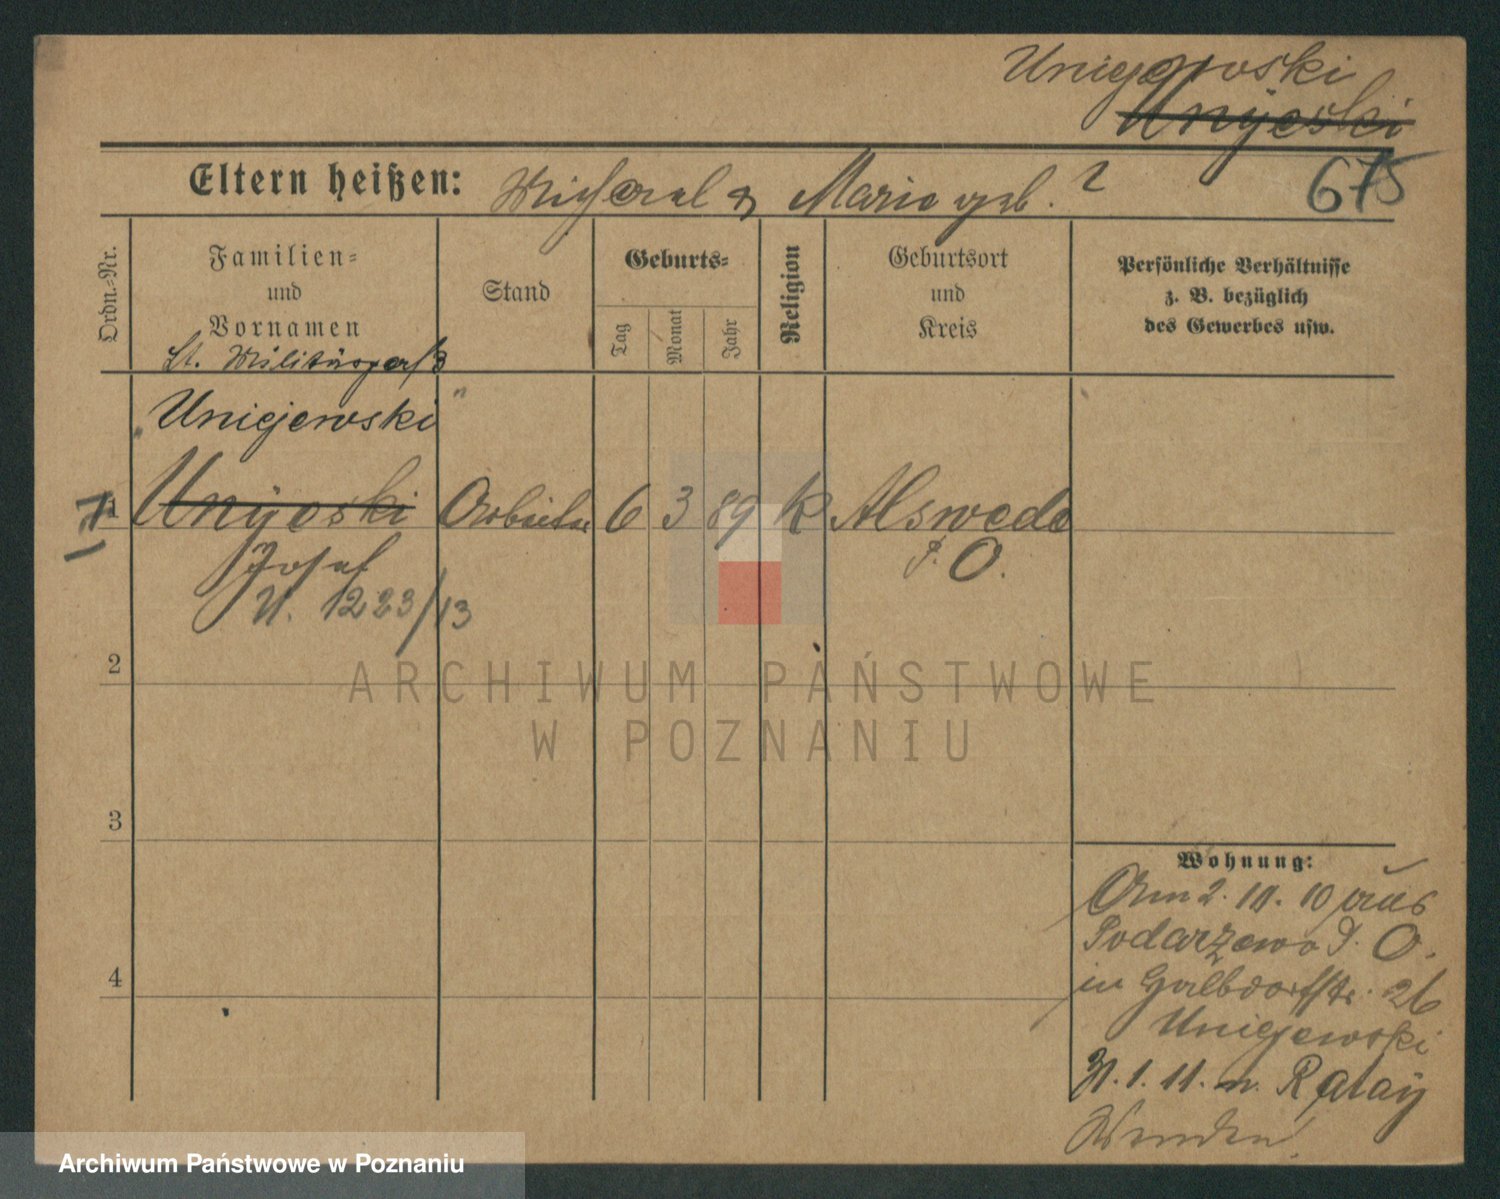 Uniejewski
Unÿeski
Eltern heißen: Michael & Marie geb. ?
675
Ordn.-Nr.
Familien-
und
Vornamen
Stand
Geburts-
Tag
Monat
Jahr
Religion
Geburtsort
und
Kreis
Persönliche Verhältnisse
z. B. bezüglich
des Gewerbes usw.
Lt. Militärpaß
Uniejewski
1 Unÿeski Arbeiter 6 3 89 k Alswede
Josef P. O.
U. 1223/13
2
3
4
Wohnung:
Am 2. 10. 10 aus
Podarzewo P. O.
in Halbdorfstr. 26
Uniejewski
31. 1. 11. n. Rataÿ
Wenden!
ARCHIWUM PAŃSTWOWE
W POZNANIU
Archiwum Państwowe w Poznaniu